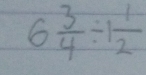 6 3/4 ÷ 1 1/2